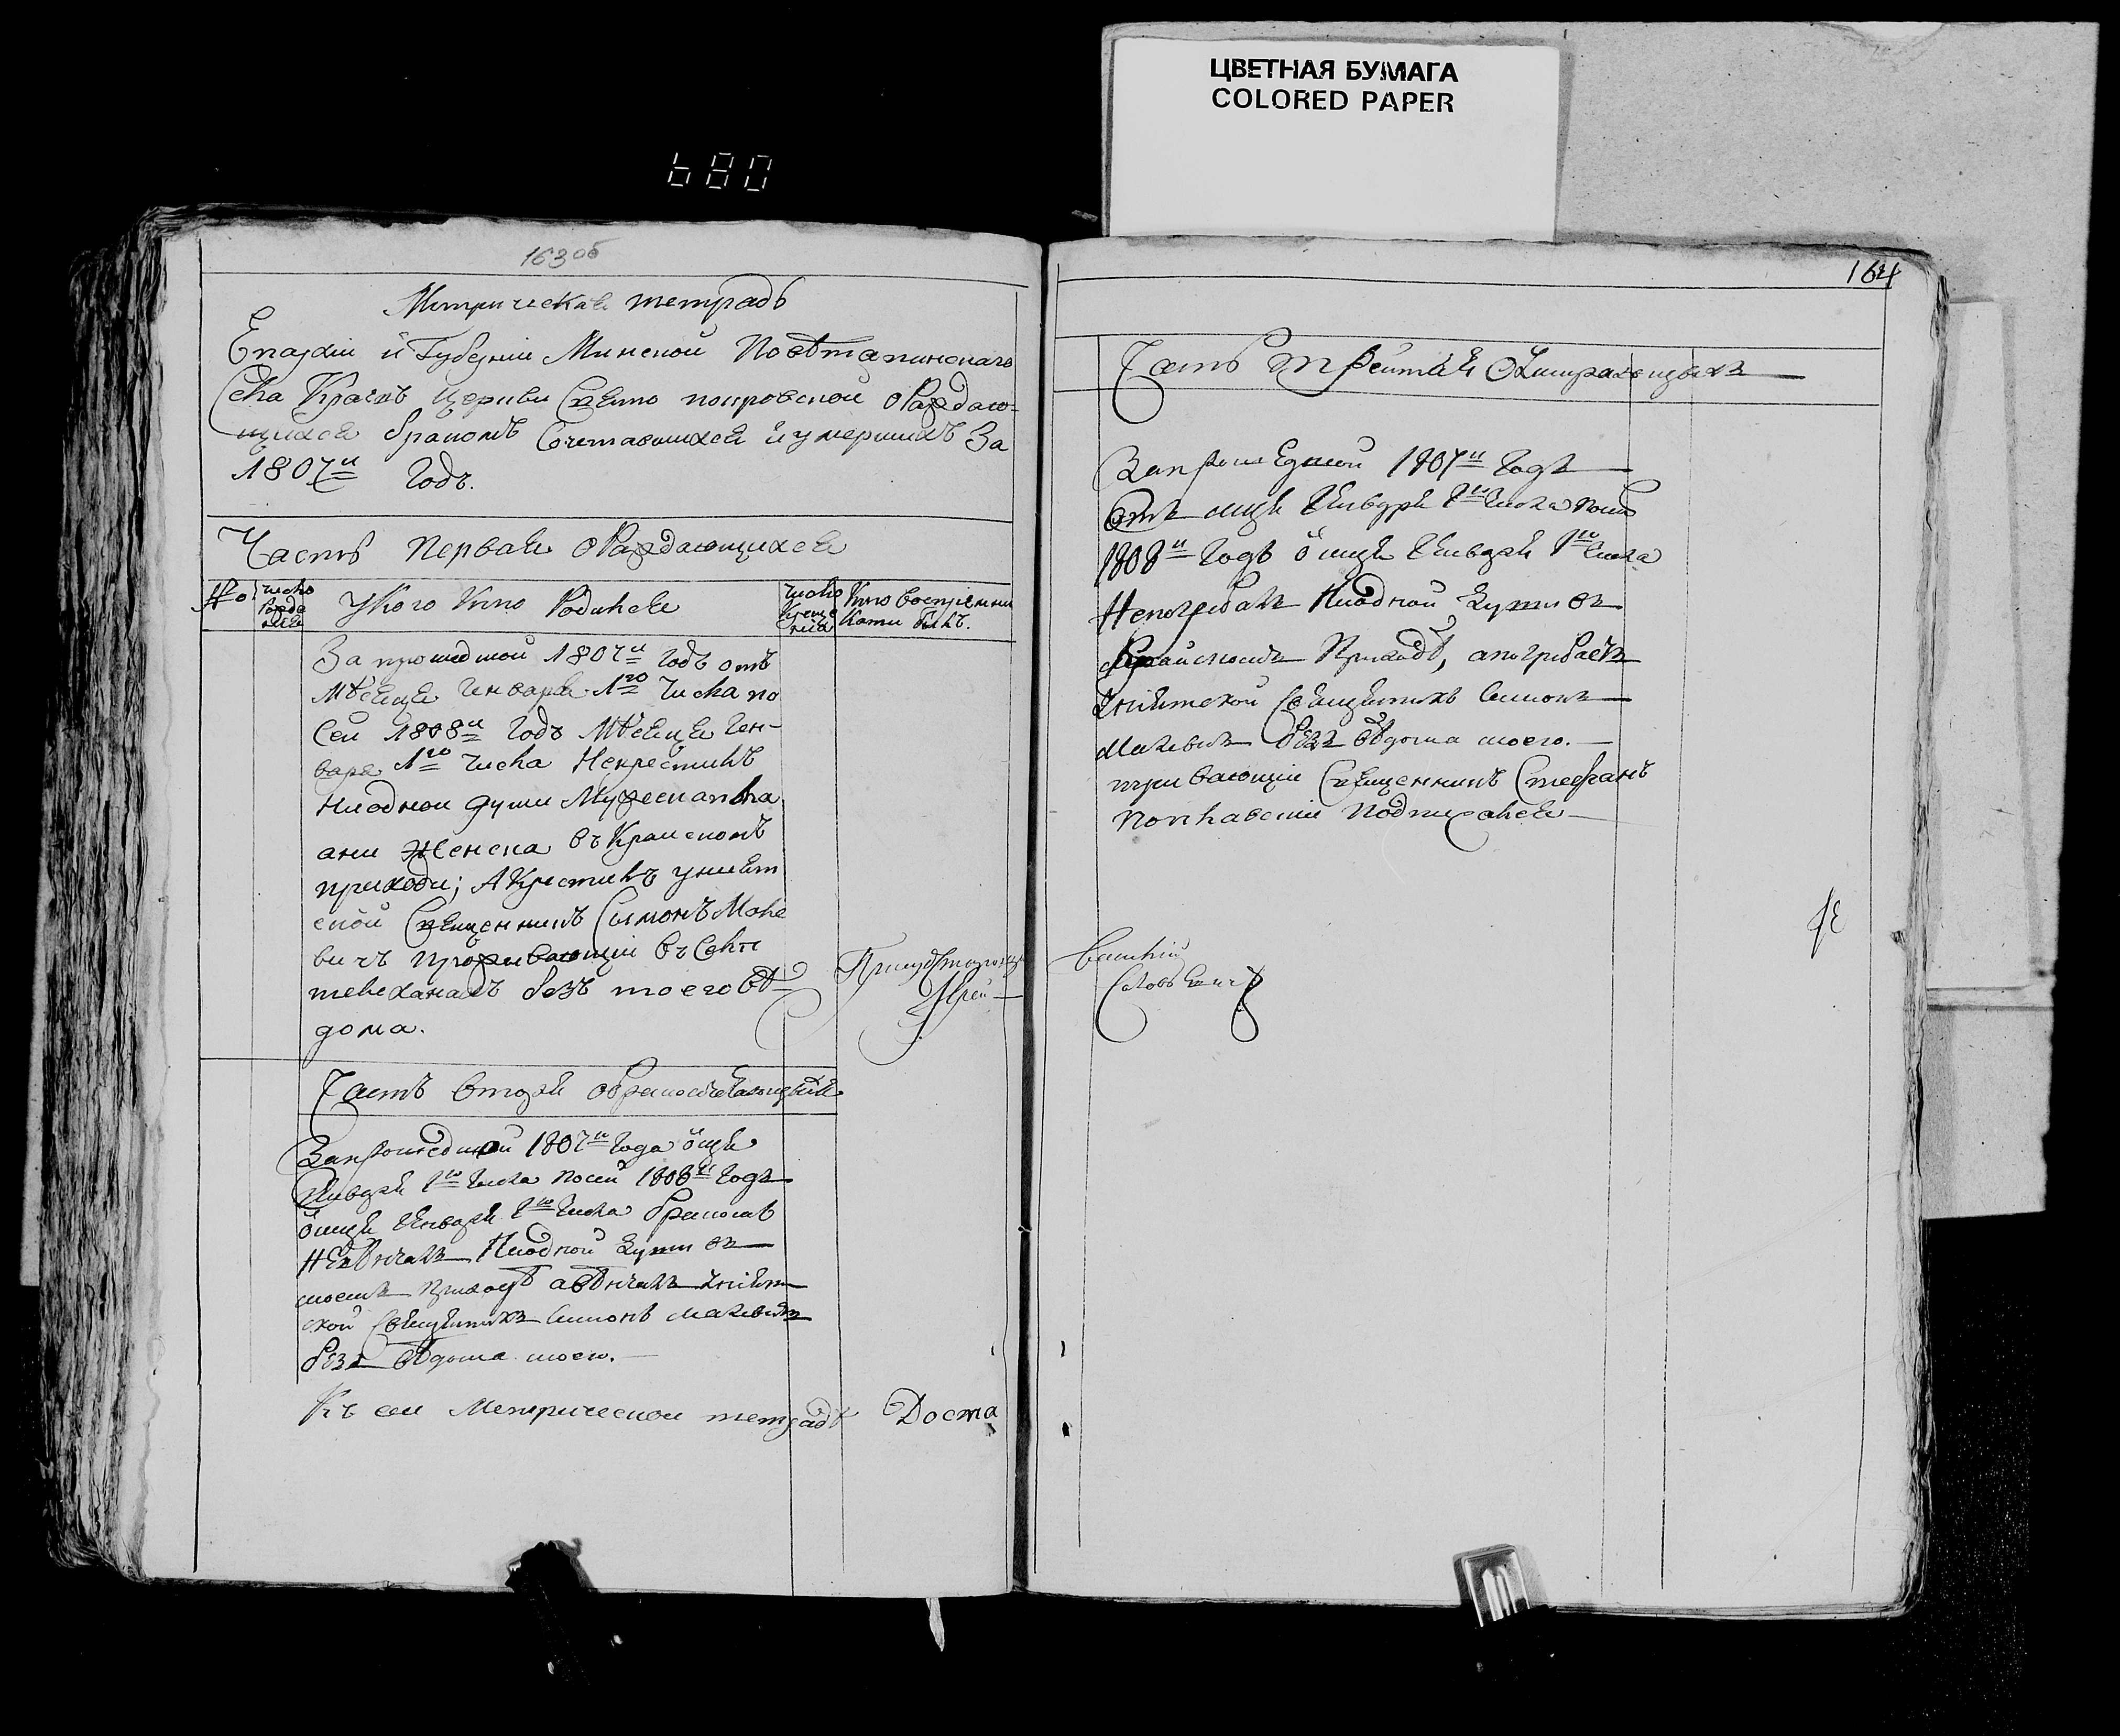 ЦВЕТНАЯ БУМАГА
COLORED PAPER
680
163об
Метрическая тетрадь
Епархіи и Губерніи Минской Повѣта пинскаго
Села Краевъ Церкви Свято покровской о Раждаю-
щихся бракомъ Сочетавшихся и умершихъ За
1807й Годъ.
Часть Первая о Раждающихся
№ Число Рожде нія У кого Кто Родился Число Креще нія Кто воспріемни Ками былъ.
За прошедшой 1807й Годъ отъ
Мѣсяца Генваря 1го Числа по
Сей 1808й Годъ Мѣсяца Ген-
варя 1го Числа Некрестилъ
Ниодной души Мужеска пола
ани Женска въ Краискомъ
приходи; А Крестилъ уният
ской Священникъ Сымонъ Маке
вичъ проживающій въ Селѣ
телеханахъ безъ моего вѣ
дома.
Часть вторая
За прошедшой 1807й Года
Генваря 1го Числа по сей 1808й Годъ
Генваря 1го Числа браком
Невѣнчалъ Ниодной души въ
моемъ приходѣ а вѣнчалъ уният
ской Священникъ Симонъ Макевичъ
безъ вѣдома моего.
Къ сей Метрической тетрадѣ Доста
164
Часть третая О Умирающихъ
За прошедшой 1807й Годъ
Отъ мця Генваря 1го Числа по
1808й Годъ мця Генваря 1го Числа
Непогребалъ Ниодной души въ
Краискомъ Приходѣ, а погребаетъ
Униятской Священникъ Симонъ
Макевичъ безъ вѣдома моего.
Священникъ Стефанъ
Подписался